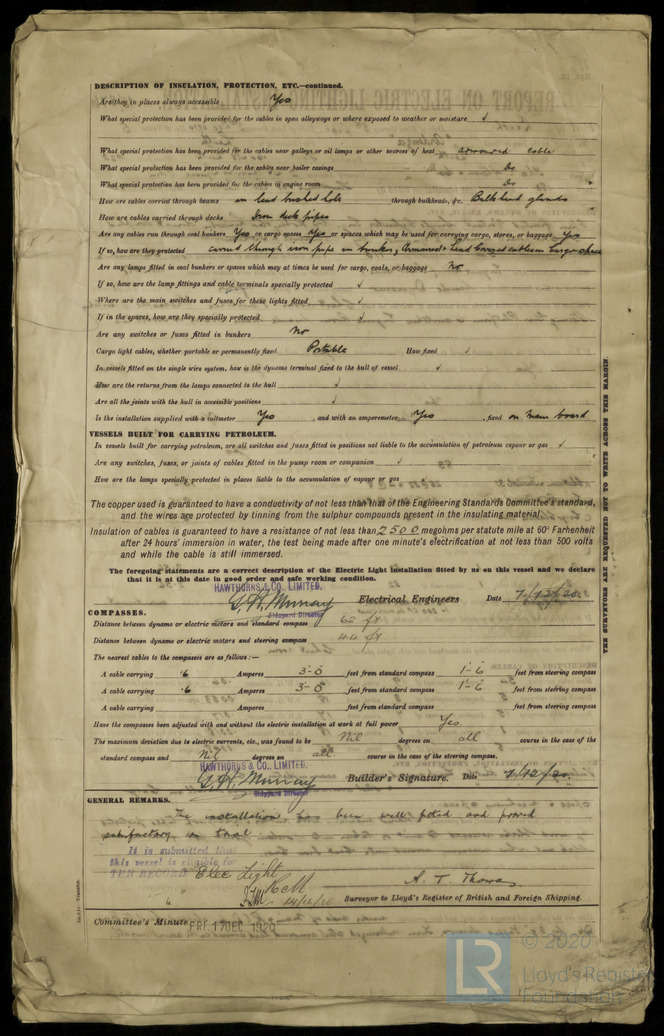 DESCRIPTION OF INSULATION, PROTECTION, ETC.—continued.
Are they in places always accessible Yes
What special protection has been provided for the cables in open alleyways or where exposed to weather or moisture
What special protection has been provided for the cables near galleys or oil lamps or other sources of heat armoured cable
What special protection has been provided for the cables near boiler casings Do
What special protection has been provided for the cables in engine room Do
How are cables carried through beams in lead bushed hole through bulkheads, &c. Bulkhead glands
How are cables carried through decks Iron deck pipes
Are any cables run through coal bunkers Yes or cargo spaces Yes or spaces which may be used for carrying cargo, stores, or baggage Yes
If so, how are they protected carried through iron pipe in bunkers, Armoured & Lead covered cables in Cargo space
Are any lamps fitted in coal bunkers or spaces which may at times be used for cargo, coals, or baggage No
If so, how are the lamp fittings and cable terminals specially protected
Where are the main switches and fuses for these lights fitted
If in the spaces, how are they specially protected
Are any switches or fuses fitted in bunkers No
Cargo light cables, whether portable or permanently fixed Portable How fixed
In vessels fitted on the single wire system, how is the dynamo terminal fixed to the hull of vessel
How are the returns from the lamps connected to the hull
Are all the joints with the hull in accessible positions
Is the installation supplied with a voltmeter Yes, and with an amperemeter Yes, fixed on main board
VESSELS BUILT FOR CARRYING PETROLEUM.
In vessels built for carrying petroleum, are all switches and fuses fitted in positions not liable to the accumulation of petroleum vapour or gas
Are any switches, fuses, or joints of cables fitted in the pump room or companion
How are the lamps specially protected in places liable to the accumulation of vapour or gas
The copper used is guaranteed to have a conductivity of not less than that of the Engineering Standards Committee's standard,
and the wires are protected by tinning from the sulphur compounds present in the insulating material.
Insulation of cables is guaranteed to have a resistance of not less than 2500 megohms per statute mile at 60° Farhenheit
after 24 hours' immersion in water, the test being made after one minute's electrification at not less than 500 volts
and while the cable is still immersed.
The foregoing statements are a correct description of the Electric Light installation fitted by us on this vessel and we declare
that it is at this date in good order and safe working condition.
HAWTHORNS & CO., LIMITED.
G. H. Murray Electrical Engineers Date 7/12/20.
Shipyard Director
COMPASSES.
Distance between dynamo or electric motors and standard compass 62 ft
Distance between dynamo or electric motors and steering compass 44 ft
The nearest cables to the compasses are as follows:—
A cable carrying .6 Amperes 3'-0 feet from standard compass 1'-6 feet from steering compass
A cable carrying .6 Amperes 3'-0 feet from standard compass 1'-6 feet from steering compass
A cable carrying Amperes feet from standard compass feet from steering compass
Have the compasses been adjusted with and without the electric installation at work at full power Yes
The maximum deviation due to electric currents, etc., was found to be Nil degrees on all course in the case of the
standard compass and Nil degrees on all course in the case of the steering compass.
HAWTHORNS & CO., LIMITED.
G. H. Murray Builder's Signature. Date 7/12/20.
Shipyard Director
GENERAL REMARKS.
The installation has been well fitted and proved
satisfactory on trial
It is submitted that
this vessel is eligible for
THE RECORD Elec Light
A. T. Thomas
Surveyor to Lloyd's Register of British and Foreign Shipping.
Committee's Minute FRI. 17 DEC 1920
THE SURVEYORS ARE REQUESTED NOT TO WRITE ACROSS THIS MARGIN.
LR
© 2020
Lloyd's Register
Foundation